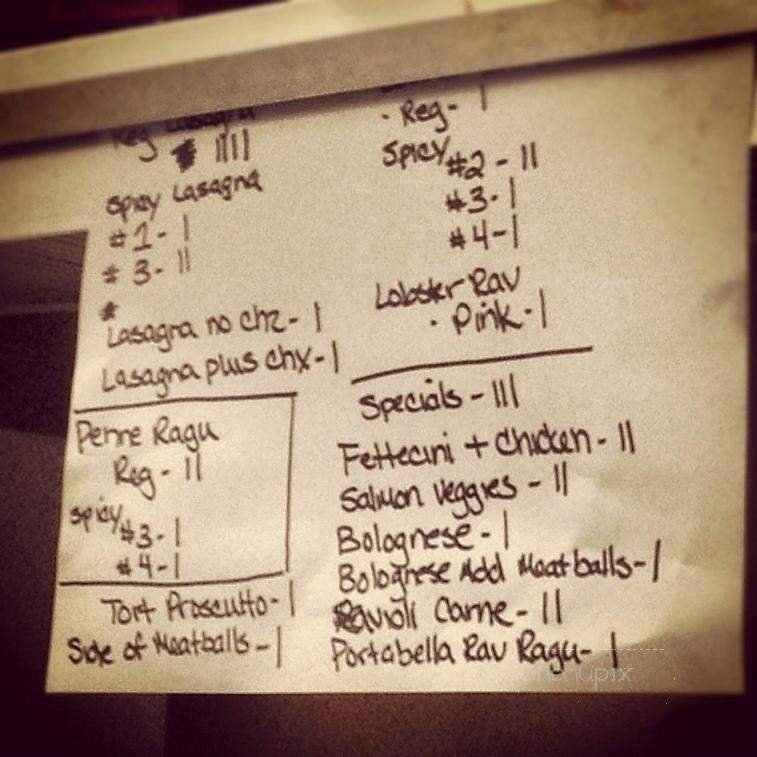 Reg Lasagna
||||
Spicy Lasagna
#1 - |
#3 - ||
#
Lasagna no chz - |
Lasagna plus chx - |
Penne Ragu
Reg - ||
Spicy #3 - |
#4 - |
Tort Proscutto - |
Side of Meatballs - |
· Reg - |
Spicy #2 - ||
#3 - |
#4 - |
Lobster Rav
· Pink - |
Specials - |||
Fettecini + Chicken - ||
Salmon Veggies - ||
Bolognese - |
Bolognese Add Meatballs - |
Ravioli Carne - ||
Portabella Rav Ragu - |
menupix